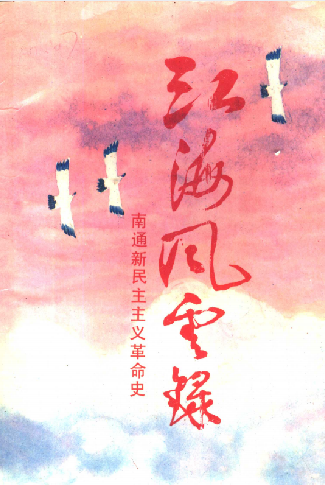 江海风云录
南通新民主主义革命史